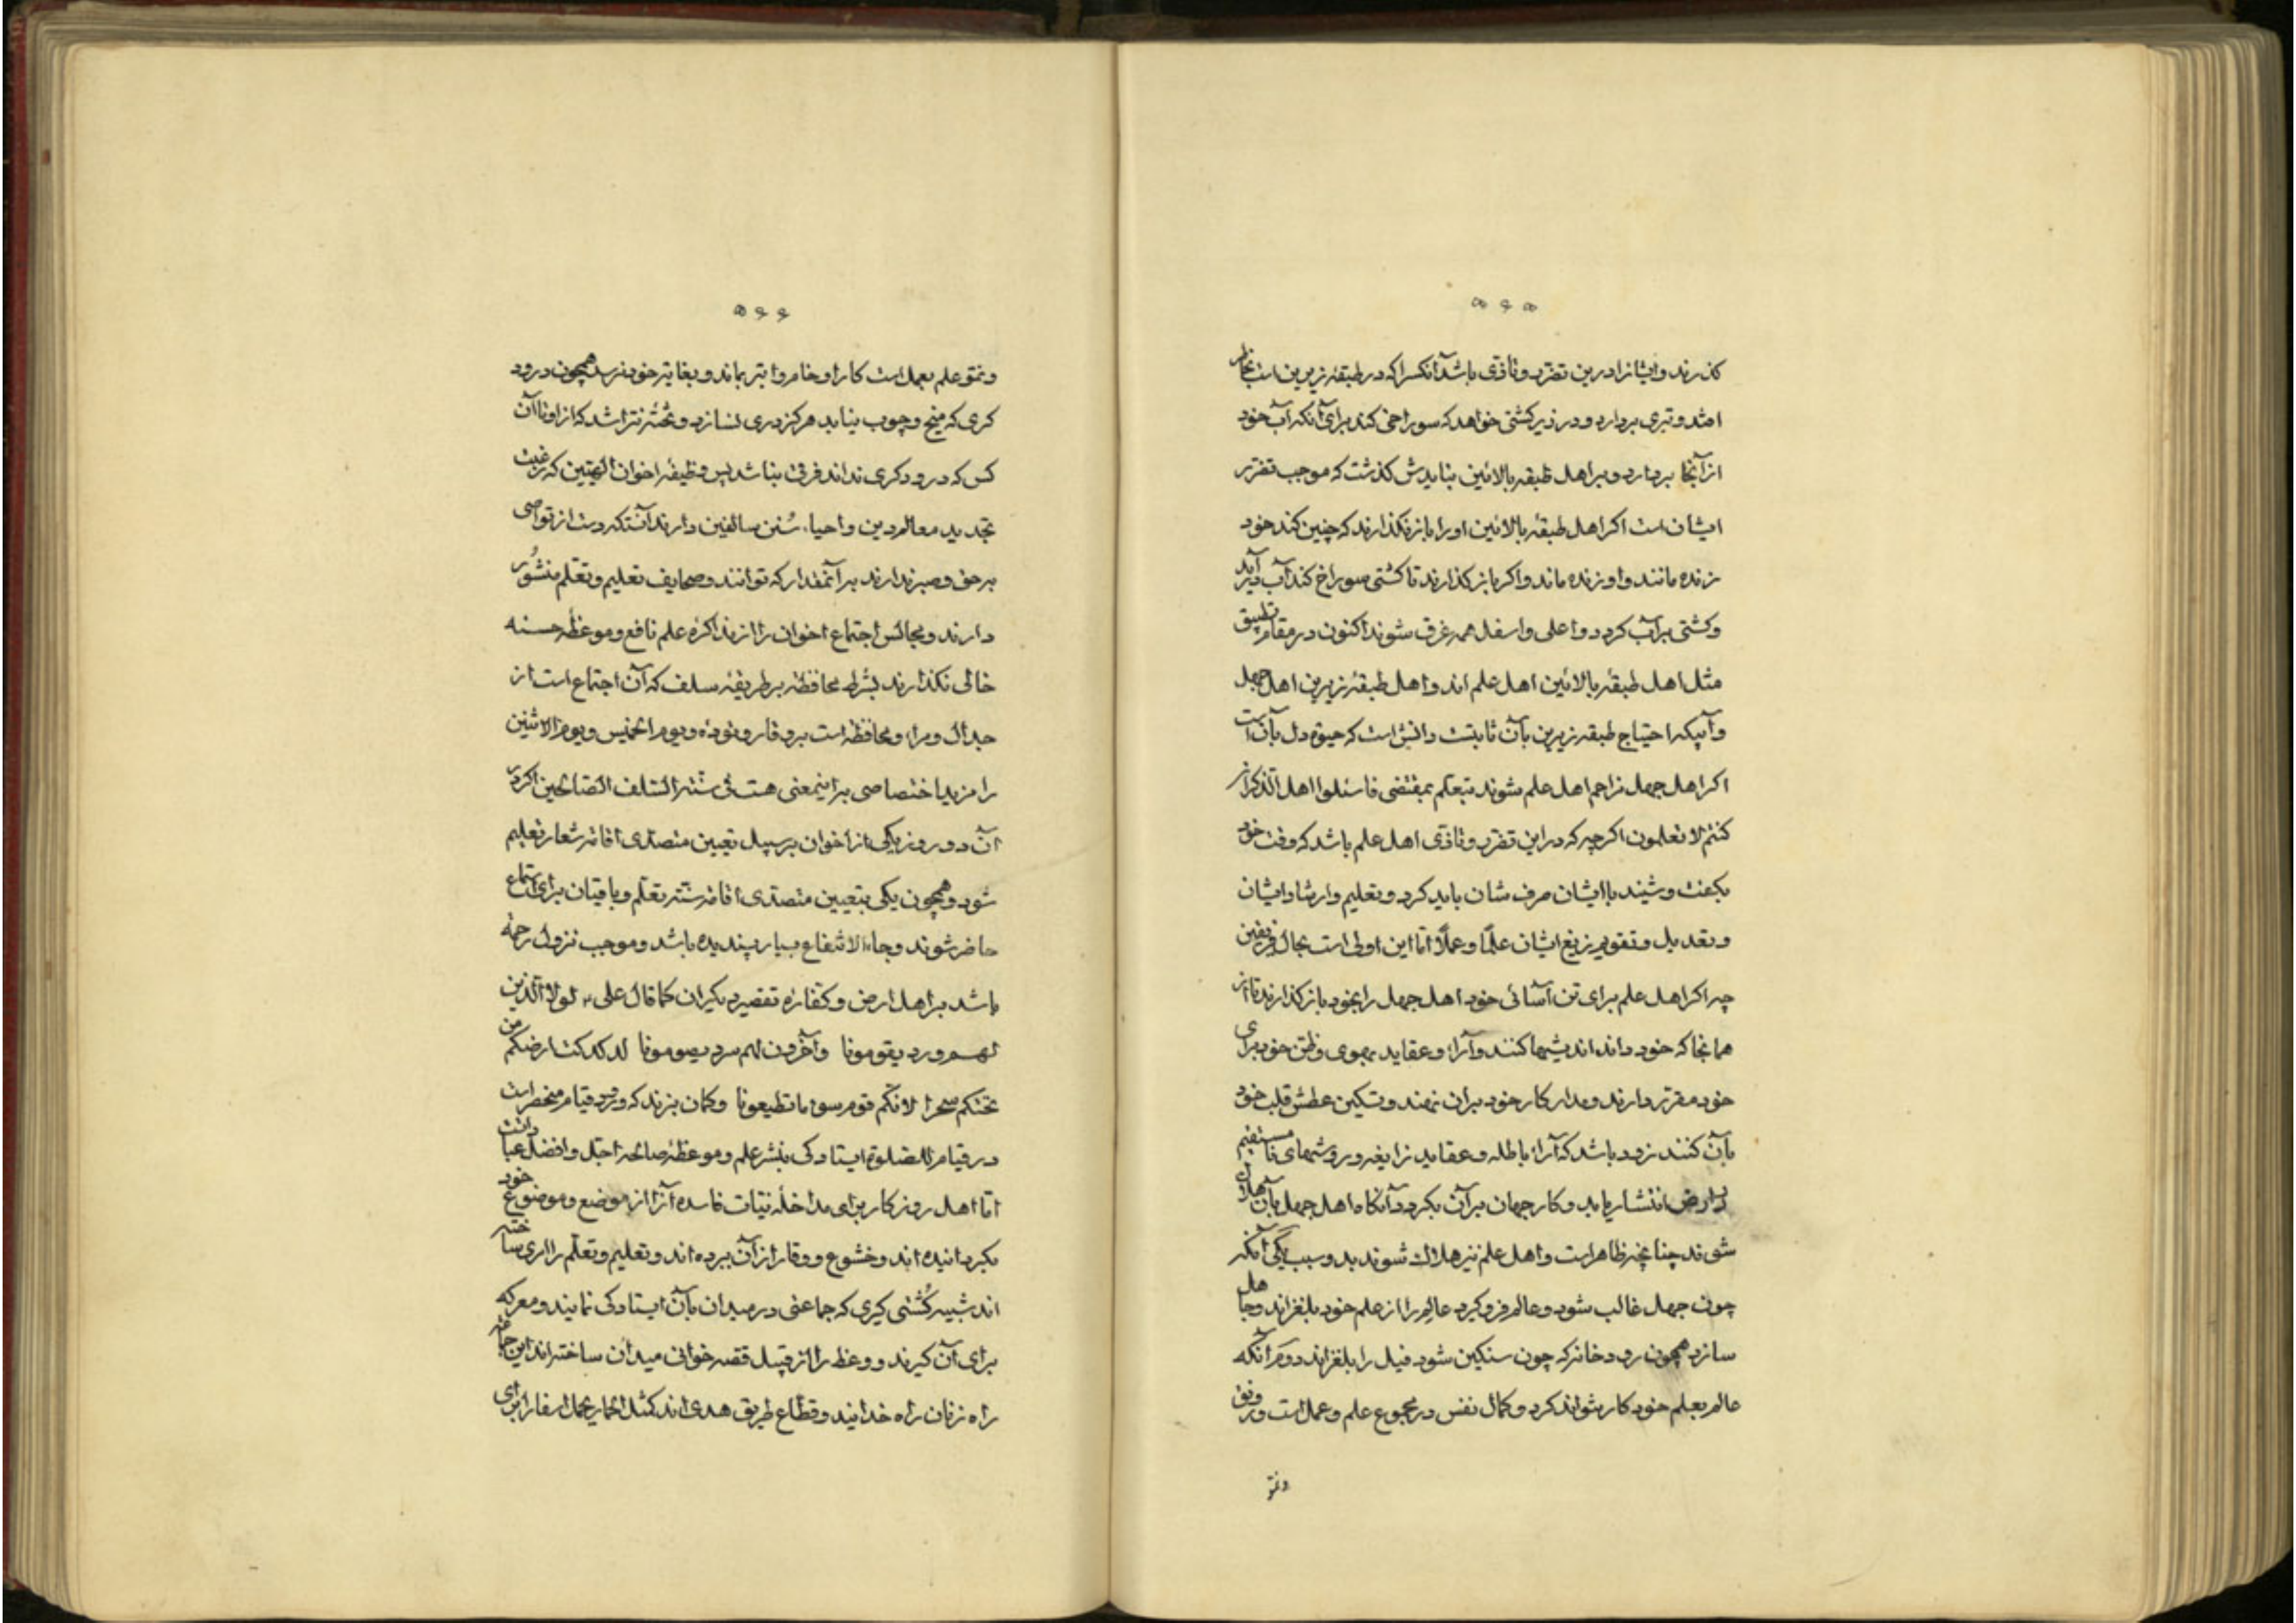 ۵۶۵
کذرند وایشانرا درین تضرر وتاذی باشد آنکسرا که در طبقه زیرین است بخاطر
امتد وتبری بردارد ودر زیر کشتی خواهد که سوراخی کند برای آنکه آب خود
از آنجا بردارد وبر اهل طبقه بالائین بنایدش کذشت که موجب تضرر
ایشان است اکر اهل طبقهٔ بالائین اورا باز نکذارند که چنین کند خود
زنده مانند واو زنده ماند واکر باز کذارند تا کشتی سوراخ کند آب در آید
وکشتی بر آب کردد واعلی واسفل همه غرق شوند اکنون در مقام تطبیق
مثل اهل طبقهٔ بالائین اهل علم اند واهل طبقهٔ زیرین اهل جهل
وآبیکه احتیاج طبقه زیرین بآن ثابتست دانش است که حیوة دل بآن است
اکر اهل جهل مزاحم اهل علم شوند بتعلّم بمقتضی فاسئلوا اهل الذکر ان
کنتم لا تعلمون اکرچه که در این تضرر وتاذی اهل علم باشد که وقت خود
بکفت وشنید با ایشان صرف شان باید کرد وبتعلیم وارشاد ایشان
وتعدیل وتقویم زیغ ایشان علمًا وعملًا امّا این اولی است بحال فریقین
چه اکر اهل علم برای تن آسائی خود اهل جهل را بخود باز کذارند تا از
همانجا که خود دانند اندیشها کنند وآراء وعقاید بهوی وظن خود برای
خود مقرّر دارند ومدار کار خود بران نهند وتسکین عطش قلب خود
بآن کنند زود باشد که آراء باطله وعقاید زایغه وروشهای نامستقیم
در ارض انتشار یابد وکار جهان بر آن بکردد وآنکاه اهل جهل بآن هلاک
شوند چنانچه ظاهر است واهل علم نیز هلاک شوند بدو سبب یکی آنکه
چون جهل غالب شود وعالم فرو کیرد عالم را از علم خود بلغزاند وجاهل
سازد همچون رودخانه که چون سنکین شود فیل را بلغزاند دوم آنکه
عالم بعلم خود کار نتواند کرد وکمال نفس در مجموع علم وعمل است ورونق
ونمّو
۵۶۶
ونمّو علم بعمل است کار او خام وابتر بماند وبغایتر خود نرسد همچون درود
کری که میخ وچوب نیابد هرکز دری نسازد وتخته نتراشد که از او تا آن
کس که درودکری نداند فرقی نباشد پس وظیفهٔ اخوان الهیین که رغبت
تجدید معالم دین واحیاء سُنن سالفین دارند آنستکه دست از تواصی
بر حق وصبر ندارند بر آنمقدار که توانند وصحایف تعلیم وتعلّم منشُور
دارند ومجالس اجتماع اخوان را از مذاکره علم نافع وموعظهٔ حسنه
خالی نکذارند بشرط محافظه بر طریقهٔ سلف که آن اجتماع است از
جدال ومراء ومحافظه است بر وقار وتؤده ویوم الخمیس ویوم الاثنین
را مزید اختصاصی براینمعنی هست فی سنّة السّلف الصّالحین اکر در
آن دو روز یکی از اخوان بر سبیل تعیین متصدّی اقامه شعار تعلیم
شود وهمچون یکی بتعیین متصدّی اقامه سنّت تعلّم وباقیان برای استماع
حاضر شوند وجاء الانتفاع بسیار پسندیده باشد وموجب نزول رحمة
باشد بر اهل ارض وکفّارهٔ تقصیر دیکران کما قال علی ؑ لولا الّذین
لهم ورد یقومونا وآخرون لهم سرد یصومونا لدکدکت ارضکم من
تحتکم سحرا لانکم قوم سوء ما تطیعونا وکمان نبرند که ورد قیام منحصر است
در قیام للصّلوة ایستادکی بنشر علم وموعظهٔ صالحه اجلّ وافضل عبادتست
امّا اهل روزکار برای مداخلهٔ نیّات فاسده آنرا از موضع وموضوع خود
بکردانیده اند وخشوع ووقار از آن ببرده اند وتعلیم وتعلّم را اری ساخته
اند شبیه کُشتی کیری که جماعتی در میدان بآن ایستادکی نمایند ومعرکه
برای آن کیرند ووعظ را از قبیل قصه خوانی میدان ساخته اند این جماعه
راه زنان راه خدایند وقطّاع طریق هدی اند کمثل الحمار یحمل اسفارا برای